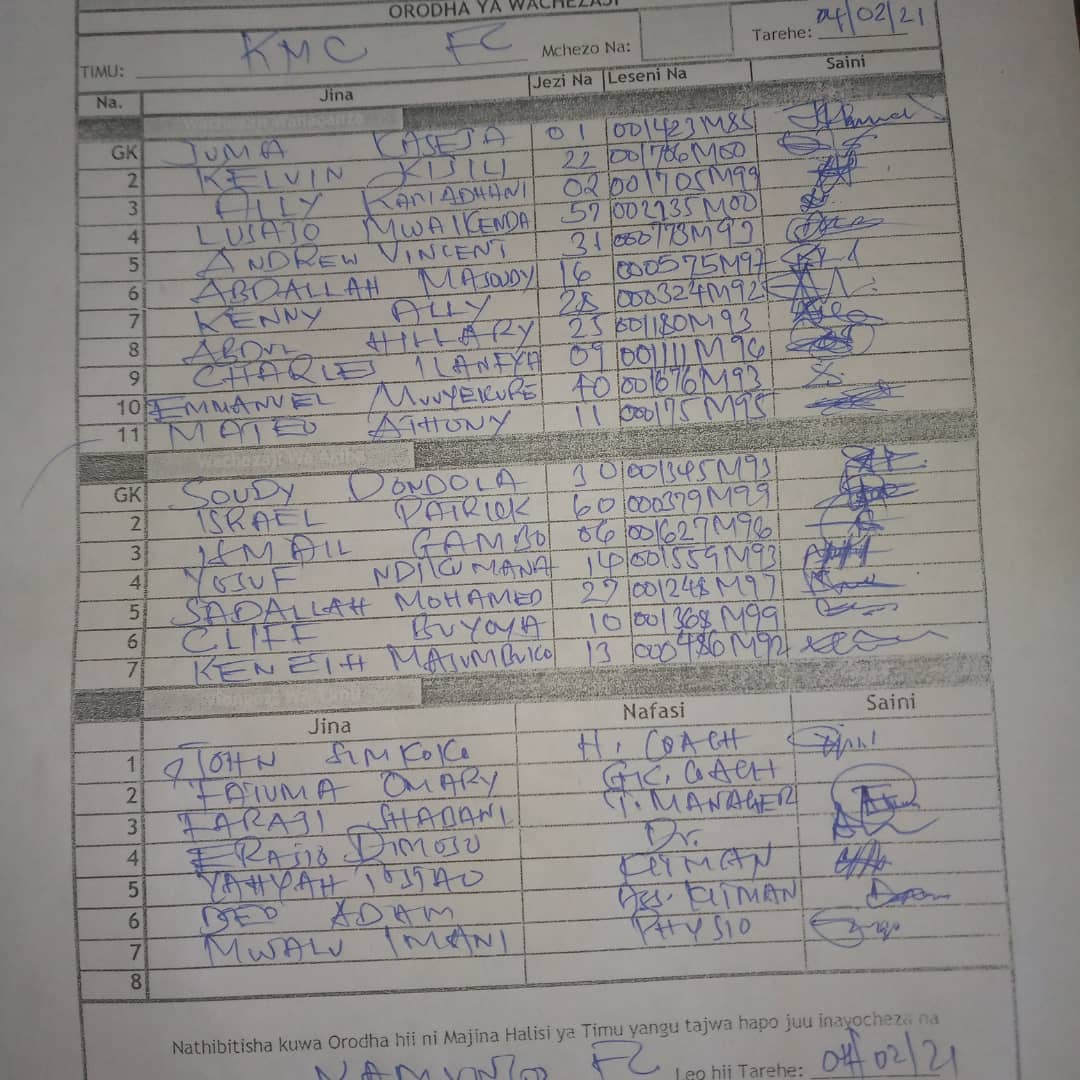 ORODHA YA WACHEZAJI
TIMU: KMC FC Mchezo Na: Tarehe: 04/02/21
Na. Jina Jezi Na Leseni Na Saini
GK JUMA KASEJA 01 001423M85
2 KELVIN KIJILI 22 001706M00
3 ALLY RAMADHANI 02 001705M99
4 LUSAJO MWAIKENDA 57 002735M00
5 ANDREW VINCENT 31 000773M93
6 ABDALLAH MASOUDY 16 000575M97
7 KENNY ALLY 28 000324M92
8 ABDUL HILLARY 25 001180M93
9 CHARLES ILANFYA 09 001111M96
10 EMMANUEL MVUYEKURE 40 001676M93
11 MATEO ATHONY 11 000175M95
Wachezaji wa Akiba
GK SOUDY DONDOLA 30 001345M93
2 ISRAEL PATRICK 60 000379M99
3 ISMAIL GAMBO 06 001627M96
4 YUSUF NDIKUMANA 14 001559M93
5 SADALLAH MOHAMED 27 001248M97
6 CLIFF BUYOYA 10 001368M99
7 KENETH MASUMBUKO 13 000486M92
Jina Nafasi Saini
1 JOHN SIMKOKO H. COACH
2 FATUMA OMARY GK. COACH
3 FARAJI SHABANI T. MANAGER
4 Dr.
5 YAHYAH KITMAN
6 DEO ADAM Ass. KITMAN
7 MWALU IMANI PHYSIO
8
Nathibitisha kuwa Orodha hii ni Majina Halisi ya Timu yangu tajwa hapo juu inayocheza na
NAMUNGO FC Leo hii Tarehe: 04/02/21